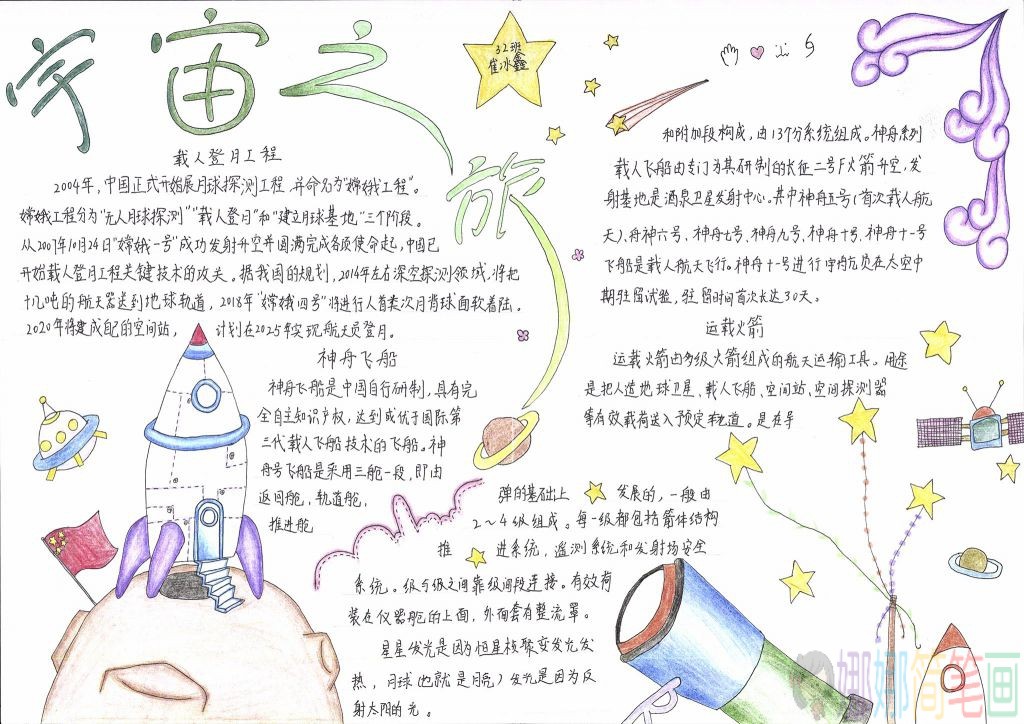 宇宙之旅
32班
崔冰鑫
载人登月工程
2004年,中国正式开始展月球探测工程,并命名为"嫦娥工程"。
嫦娥工程分为"无人月球探测""载人登月"和"建立月球基地"三个阶段。
从2007年10月24日"嫦娥一号"成功发射升空并圆满完成各项使命起,中国已
开始载人登月工程关键技术的攻关。据我国的规划,2014年左右深空探测领域,将把
十几吨的航天器送到地球轨道,2018年"嫦娥四号"将进行人首类次月背球面软着陆。
2020年将建成自己的空间站,计划在2025年实现航天员登月。
神舟飞船
神舟飞船是中国自行研制,具有完
全自主知识产权,达到或优于国际第
三代载人飞船技术的飞船。神
舟号飞船是采用三舱一段,即由
返回舱,轨道舱,
推进舱
和附加段构成,由13个分系统组成。神舟系列
载人飞船由专门为其研制的长征二号F火箭升空,发
射基地是酒泉卫星发射中心。其中神舟五号(首次载人航
天)、舟神六号、神舟七号、神舟九号、神舟十号、神舟十一号
飞船是载人航天飞行。神舟十一号进行宇航员在太空中
期驻留试验,驻留时间首次长达30天。
运载火箭
运载火箭由多级火箭组成的航天运输工具。用途
是把人造地球卫星、载人飞船、空间站、空间探测器
等有效载荷送入预定轨道。是在导
弹的基础上发展的,一般由
2~4级组成。每一级都包括箭体结构
推进系统,遥测系统和发射场安全
系统。级与级之间靠级间段连接。有效荷
装在仪器舱的上面,外面套有整流罩。
星星发光是因为恒星核聚变发光发
热,月球也就是月亮)发光是因为反
射太阳的光。
娜娜简笔画